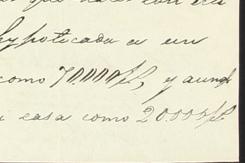 hypotecada en un
como 70.000 $, y aunq
casa como 20.000 $